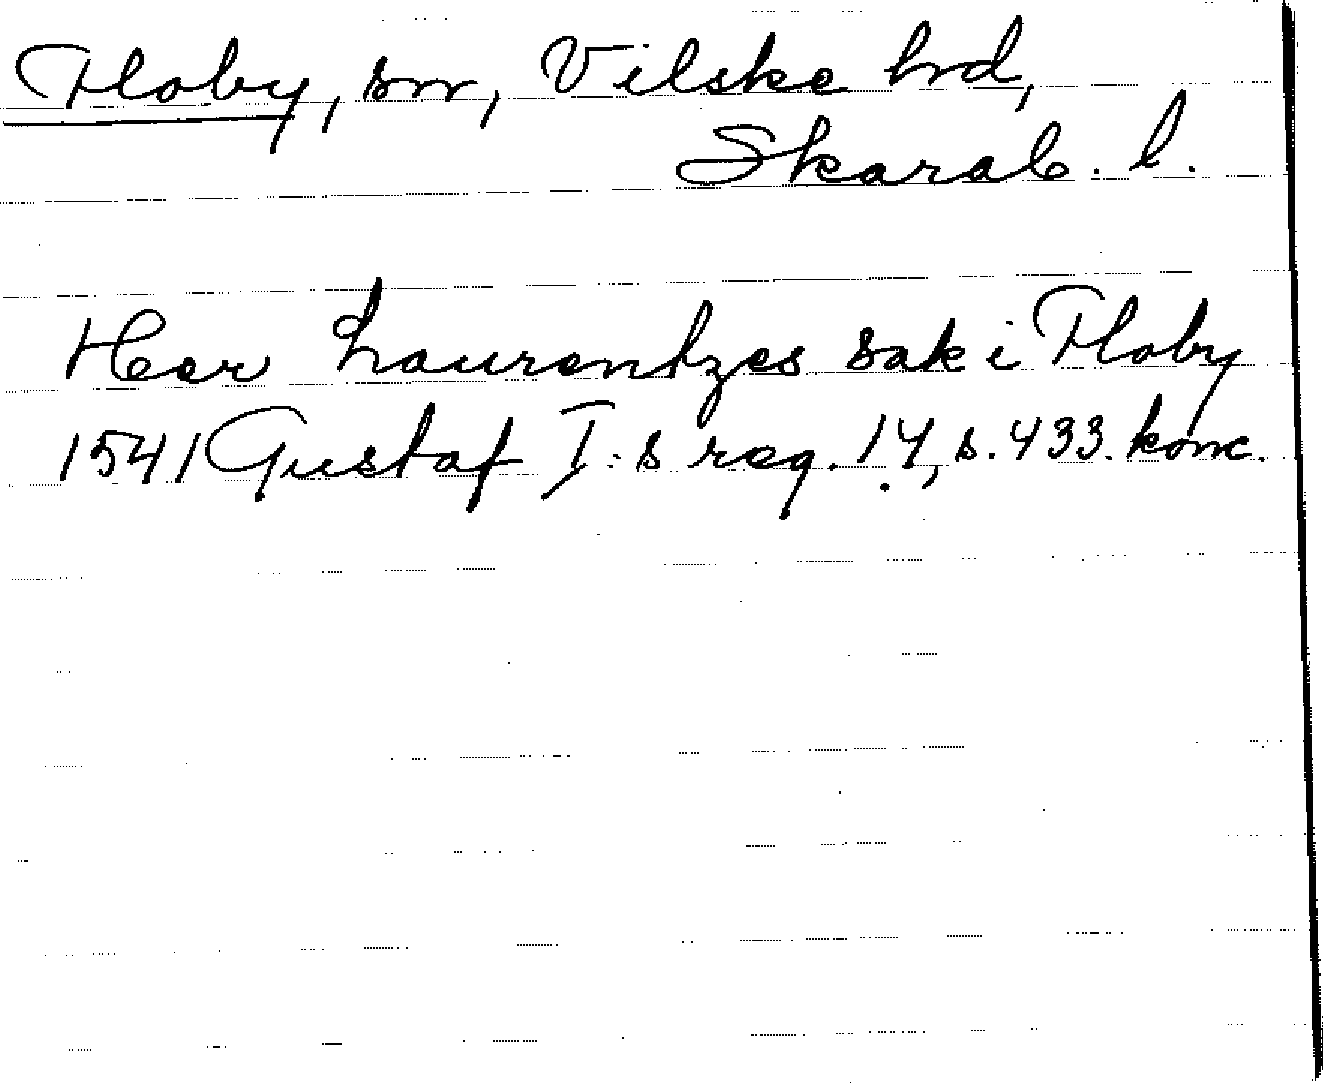 Floby, sn, Vilske hrd,
Skarab. l.
Herr Laurentzes sak i Floby
1541 Gustaf I:s reg. 14, s. 433. konc.